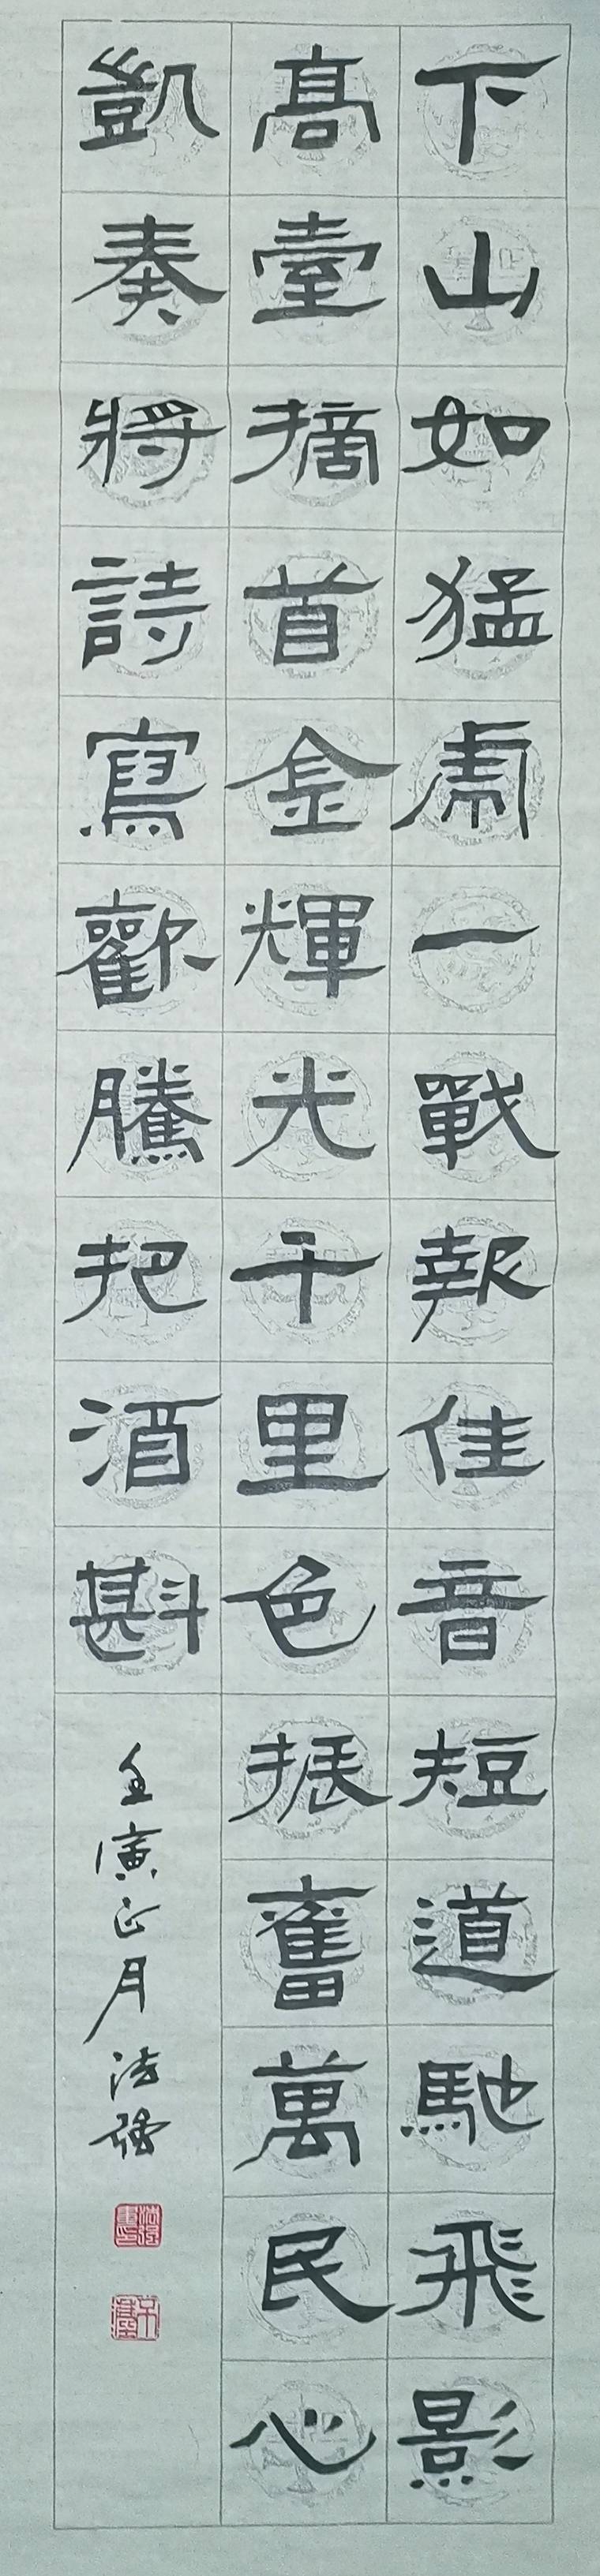 下山如猛虎一戰報佳音短道馳飛影
高臺摘首金輝光千里色振奮萬民心
凱奏將詩寫歡騰把酒斟
壬寅正月法強